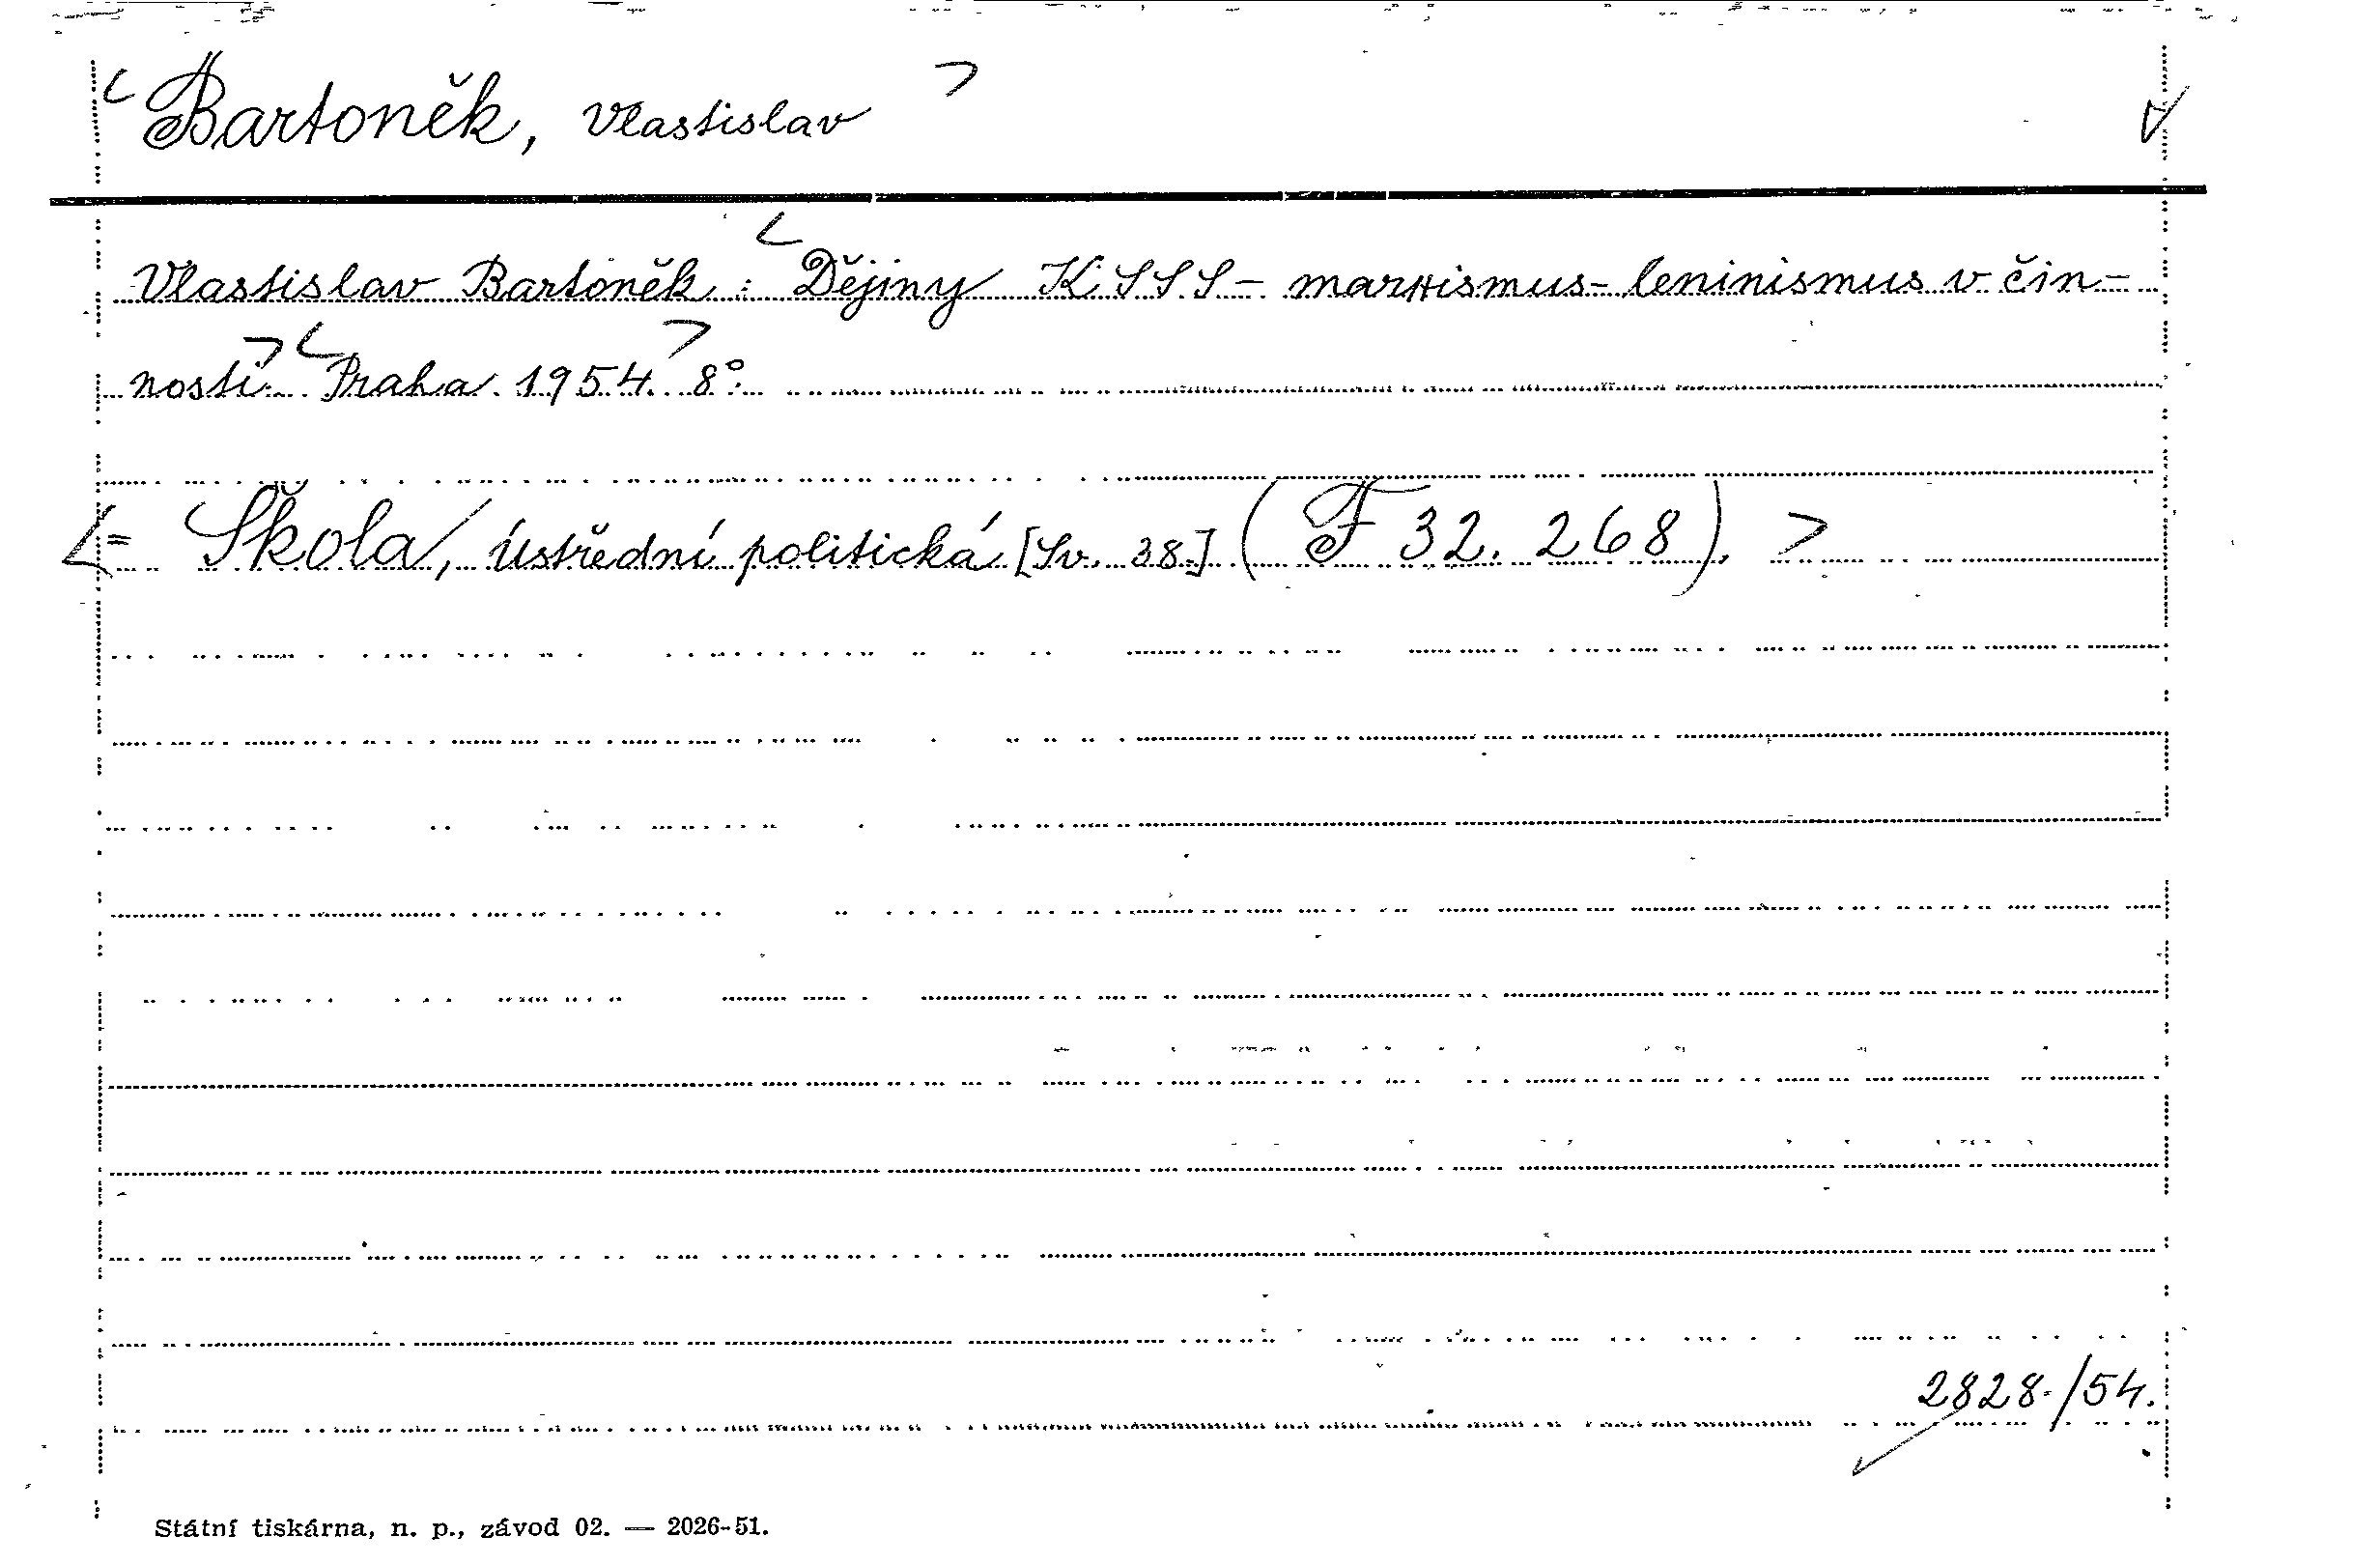 < Bartoněk, Vlastislav >
Vlastislav Bartoněk : < Dějiny KSSS - marxismus-leninismus v čin-
nosti. > < Praha 1954. > 8°.
< = Škola, ústřední politická [Sv. 38.] ( F 32.268 ). >
2828/54.
Státní tiskárna, n. p., závod 02. — 2026-51.